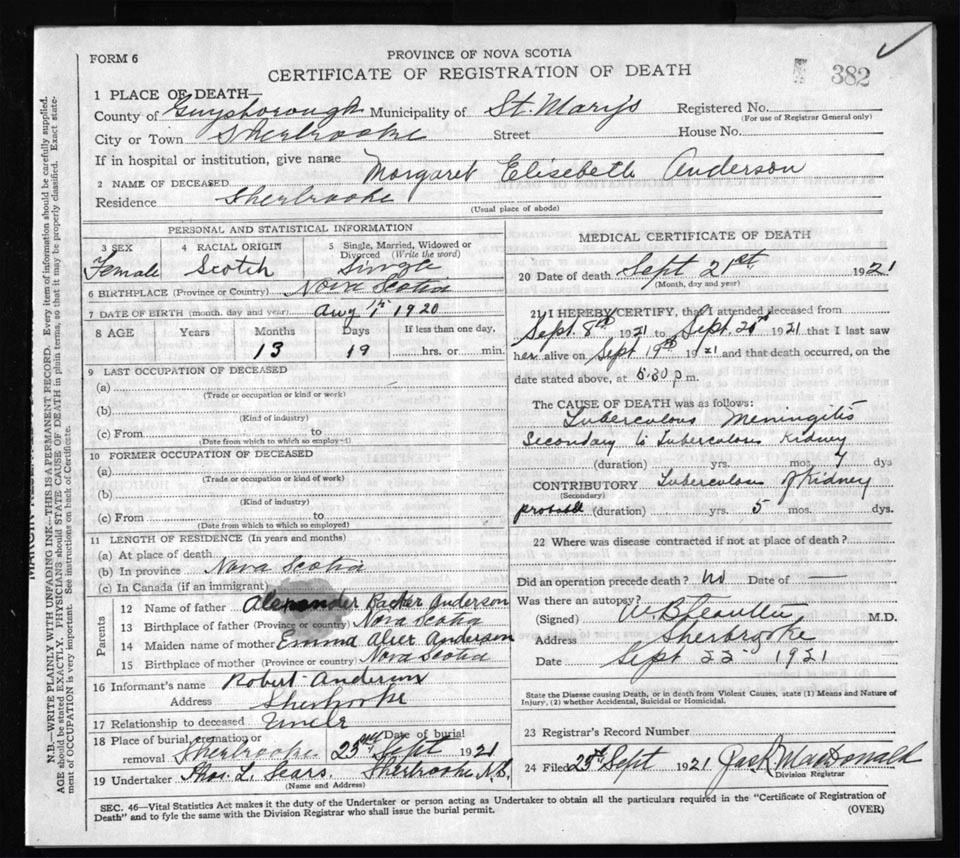 FORM 6
PROVINCE OF NOVA SCOTIA
CERTIFICATE OF REGISTRATION OF DEATH
382
1 PLACE OF DEATH—
County of Guysborough Municipality of St. Mary's Registered No.
(For use of Registrar General only)
City or Town Sherbrooke Street House No.
If in hospital or institution, give name
2 NAME OF DECEASED Margaret Elisebeth Anderson
Residence Sherbrooke
(Usual place of abode)
PERSONAL AND STATISTICAL INFORMATION
3 SEX 4 RACIAL ORIGIN 5 Single, Married, Widowed or Divorced (Write the word)
Female Scotch Single
6 BIRTHPLACE (Province or Country) Nova Scotia
7 DATE OF BIRTH (month, day and year) Aug 1920
8 AGE Years Months Days If less than one day,
13 19 hrs. or min.
9 LAST OCCUPATION OF DECEASED
(a)
(Trade or occupation or kind or work)
(b)
(Kind of industry)
(c) From to
(Date from which to which so employ-d)
10 FORMER OCCUPATION OF DECEASED
(a)
(Trade or occupation or kind of work)
(b)
(Kind of industry)
(c) From to
(Date from which to which so employed)
11 LENGTH OF RESIDENCE (In years and months)
(a) At place of death
(b) In province Nova Scotia
(c) In Canada (if an immigrant)
Parents
12 Name of father Alexander Anderson
13 Birthplace of father (Province or country) Nova Scotia
14 Maiden name of mother Emma Anderson
15 Birthplace of mother (Province or country) Nova Scotia
16 Informant's name Robert Anderson
Address Sherbrooke
17 Relationship to deceased Uncle
18 Place of burial, cremation or removal Date of burial
Sherbrooke 23rd Sept 1921
19 Undertaker Thos. L. Sears Sherbrooke N.S.
(Name and Address)
MEDICAL CERTIFICATE OF DEATH
20 Date of death Sept 21st 1921
(Month, day and year)
21 I HEREBY CERTIFY, that I attended deceased from
Sept. 8th 1921 to Sept. 1921 that I last saw
her alive on Sept 19th 1921 and that death occurred, on the
date stated above, at 5:30 p.m.
The CAUSE OF DEATH was as follows:
Tuberculous Meningitis
Secondary to Tuberculous Kidney
(duration) yrs. mos. dys
CONTRIBUTORY Tuberculous Kidney
(Secondary)
probable (duration) yrs. 5 mos. dys.
22 Where was disease contracted if not at place of death?
Did an operation precede death? No Date of —
Was there an autopsy?
(Signed) M.D.
Address Sherbrooke
Date Sept 22nd 1921
State the Disease causing Death, or in death from Violent Causes, state (1) Means and Nature of
Injury, (2) whether Accidental, Suicidal or Homicidal.
23 Registrar's Record Number
24 Filed Sept 1921 MacDonald
Division Registrar
SEC. 46—Vital Statistics Act makes it the duty of the Undertaker or person acting as Undertaker to obtain all the particulars required in the "Certificate of Registration of
Death" and to fyle the same with the Division Registrar who shall issue the burial permit.
(OVER)
N.B.—WRITE PLAINLY WITH UNFADING INK—THIS IS A PERMANENT RECORD. Every item of information should be carefully supplied.
AGE should be stated EXACTLY. PHYSICIANS should STATE CAUSE OF DEATH in plain terms, so that it may be properly classified. Exact state-
ment of OCCUPATION is very important. See instructions on back of Certificate.